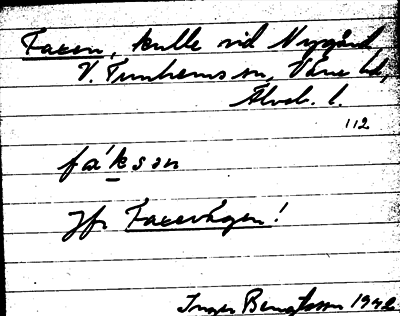 Faxen, kulle vid Nygård,
V. Tunhems sn, Väne hd,
Älvsb. l.
112
fa´ksən
Jfr Faxevägen!
Inger Bengtsson 1942